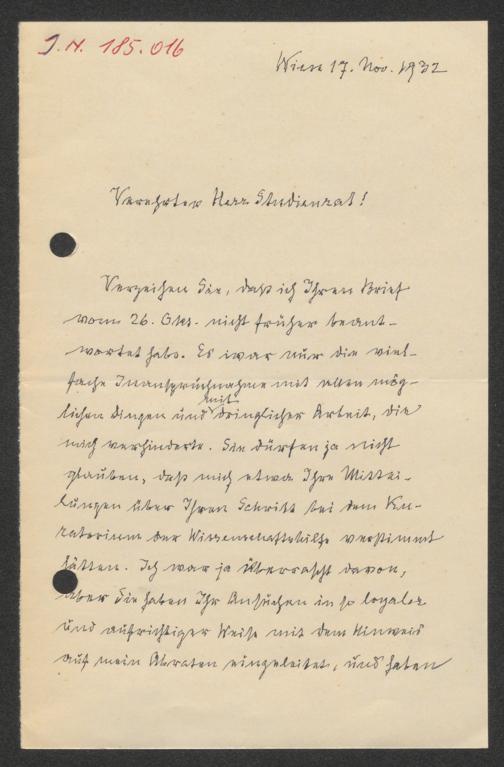 J.N. 185.016
Wien 17. Nov. 1932
Verehrter Herr Studienrat!
Verzeihen Sie, daß ich Ihren Brief
vom 26. Okt. nicht früher beant-
wortet habe. Es war nur die viel-
fache Inanspruchnahme mit allen mög-
lichen Dingen und mit dringlicher Arbeit, die
mich verhinderte. Sie dürfen ja nicht
glauben, daß mich etwa Ihre Mittei-
lungen über Ihren Schritt bei dem Ku-
ratorium der Wissenschaftshilfe verstimmt
hätten. Ich war ja überrascht davon,
aber Sie haben Ihr Ansuchen in so loyaler
und aufrichtiger Weise mit dem Hinweis
auf mein Abraten eingeleitet, und haben